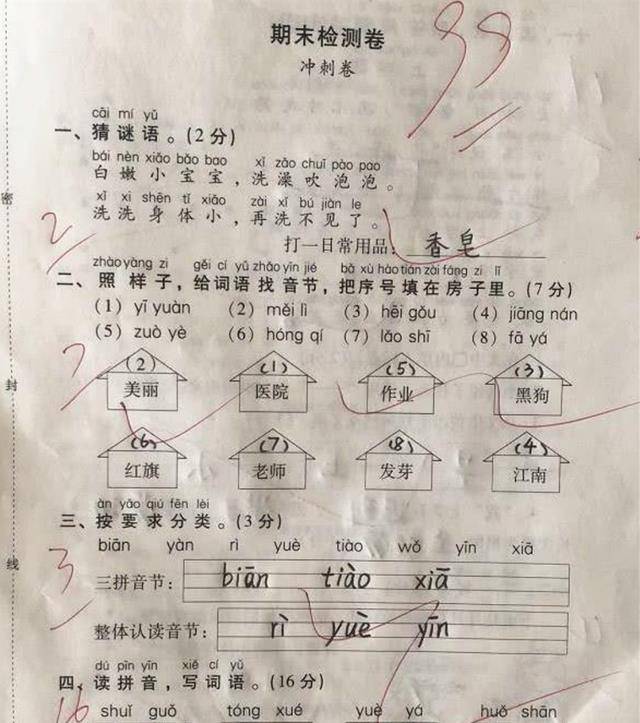 期末检测卷
冲刺卷
99
cāi mí yǔ
一、猜谜语。(2分)
bái nèn xiǎo bǎo bao xǐ zǎo chuī pào pao
白嫩小宝宝，洗澡吹泡泡。
xǐ xi shēn tǐ xiǎo zài xǐ bú jiàn le
洗洗身体小，再洗不见了。
2
打一日常用品：香皂
zhào yàng zi gěi cí yǔ zhǎo yīn jié bǎ xù hào tián zài fáng zi lǐ
二、照样子，给词语找音节，把序号填在房子里。(7分)
(1) yī yuàn (2) měi lì (3) hēi gǒu (4) jiāng nán
(5) zuò yè (6) hóng qí (7) lǎo shī (8) fā yá
7
(2) (1) (5) (3)
美丽 医院 作业 黑狗
(6) (7) (8) (4)
红旗 老师 发芽 江南
àn yāo qiú fēn lèi
三、按要求分类。(3分)
biān yàn rì yuè tiào wǒ yīn xiā
3
三拼音节： biān tiào xiā
整体认读音节： rì yuè yīn
dú pīn yīn xiě cí yǔ
四、读拼音，写词语。(16分)
16
shuǐ guǒ tóng xué yuè yá huǒ shān
密
封
线